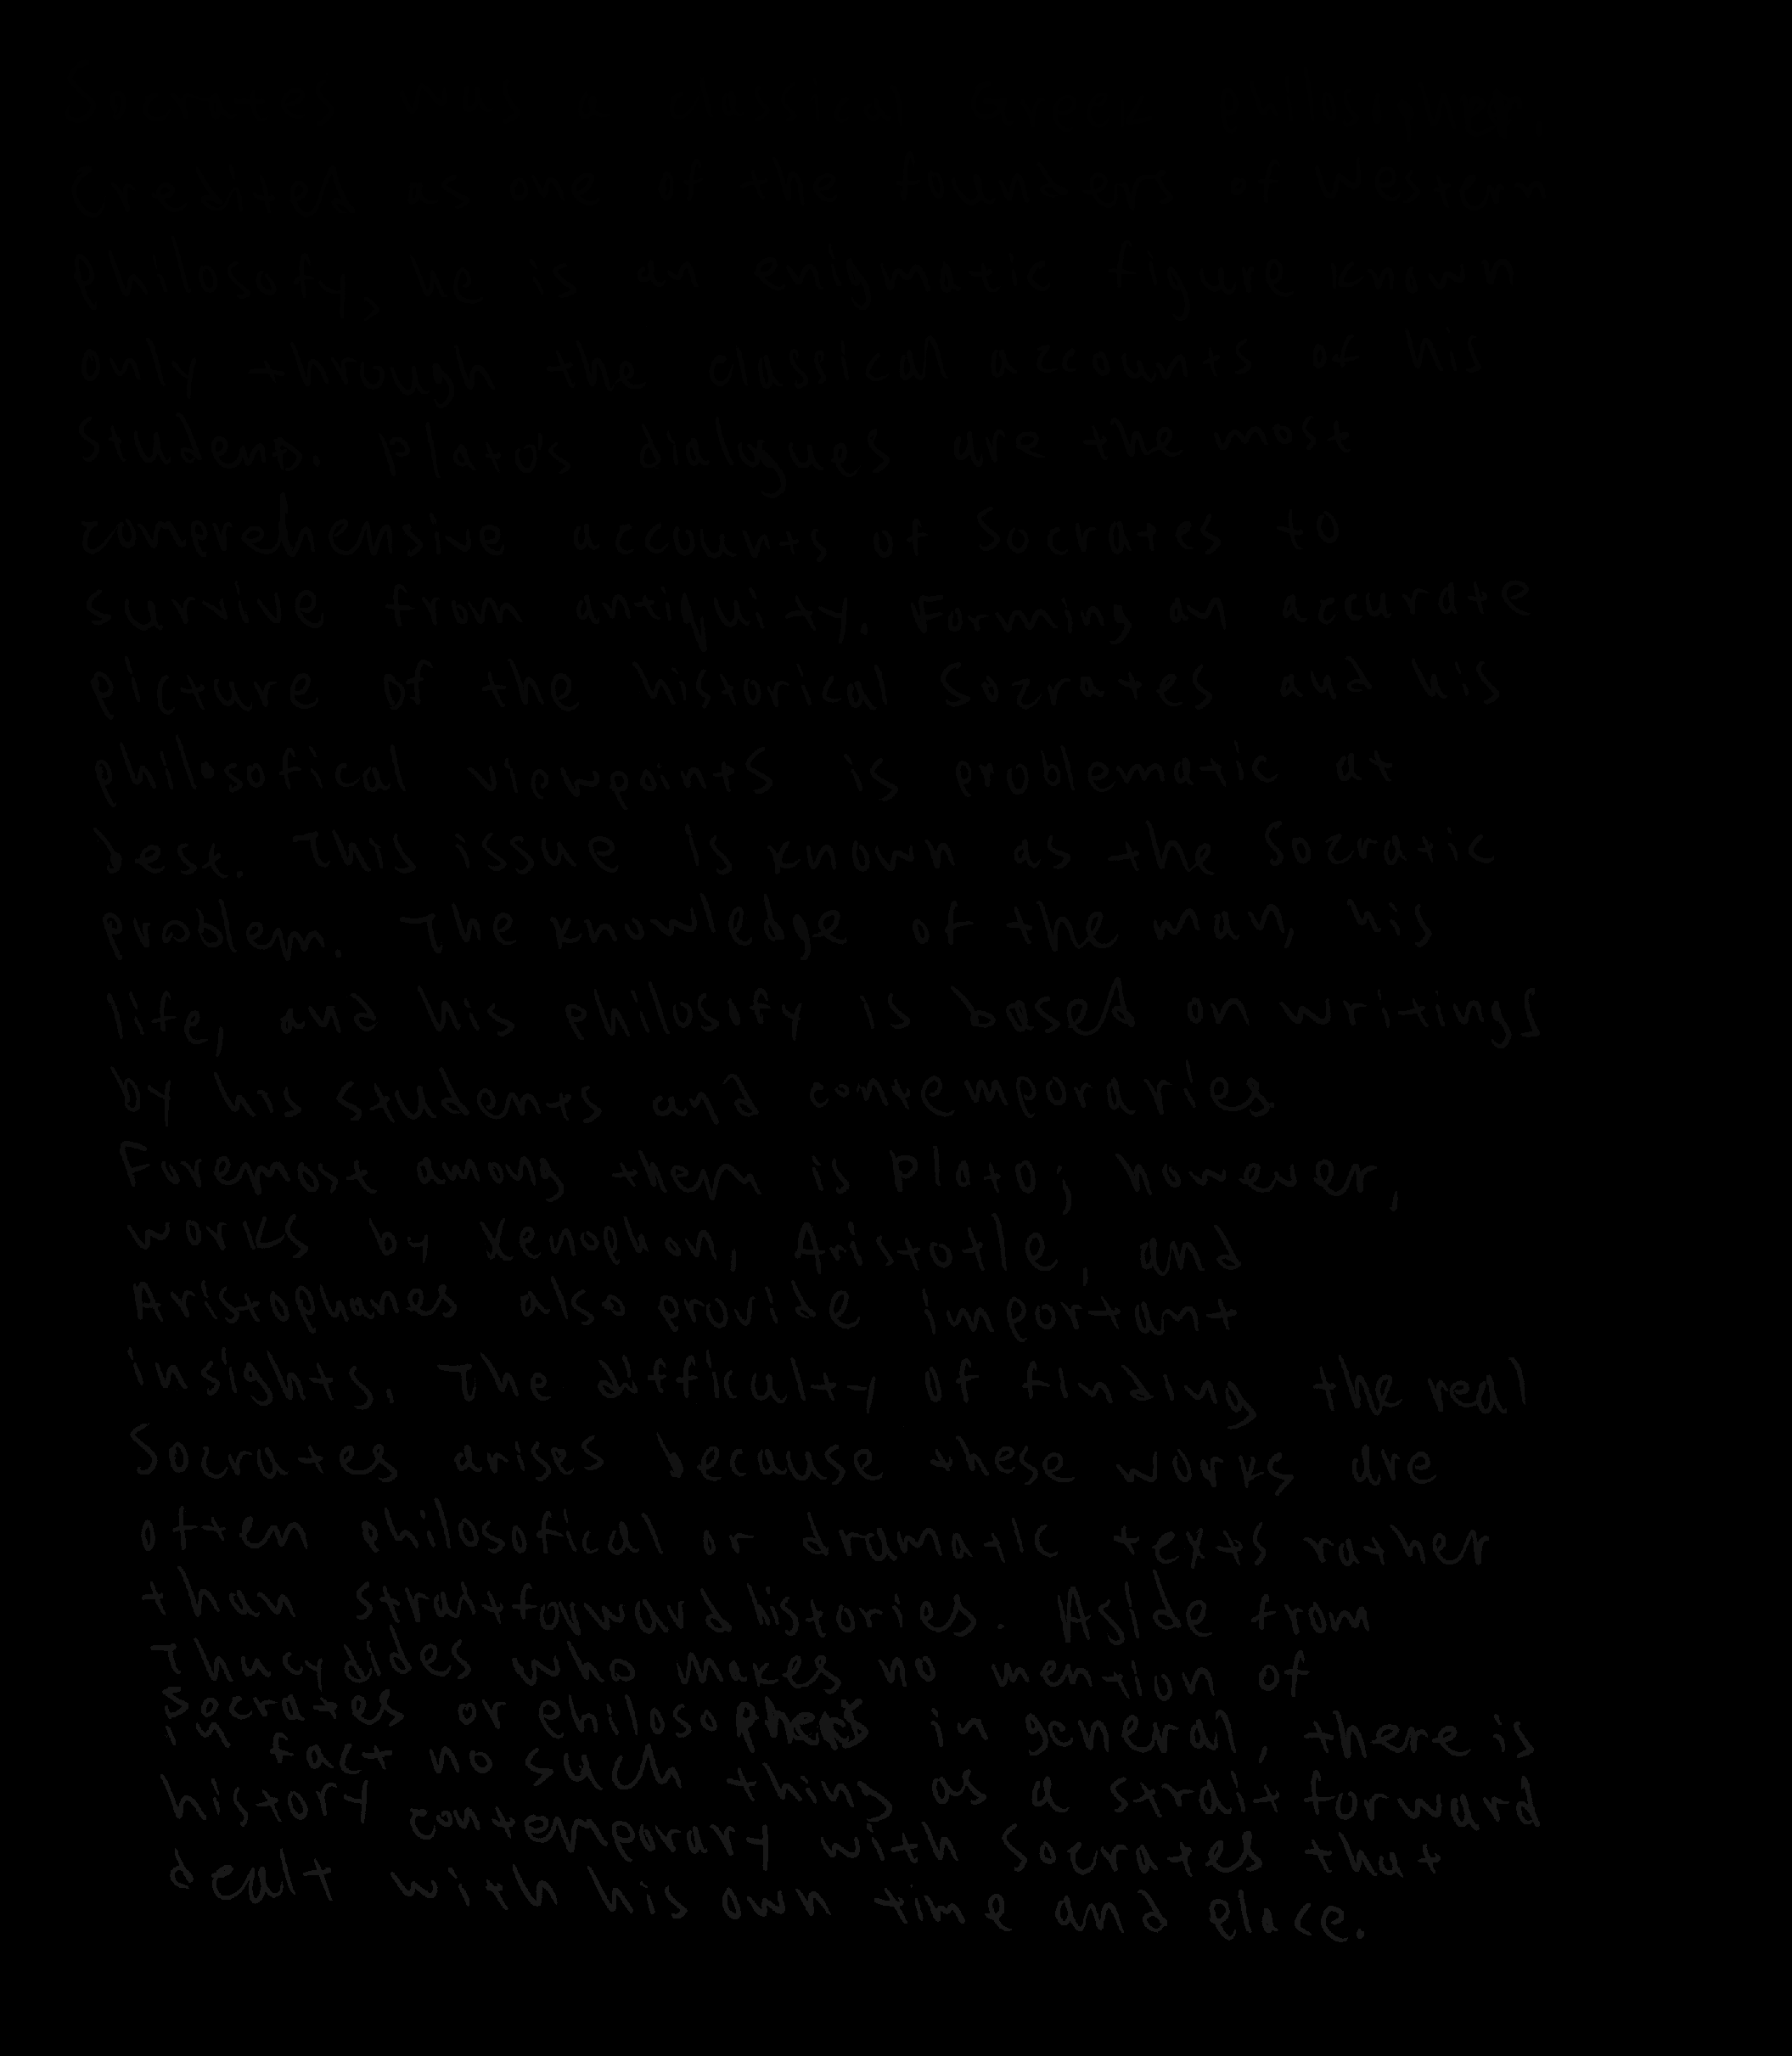 Socrates was a classical Greek philosopher.
Credited as one of the founders of western
philosofy, he is an enigmatic figure known
only through the classical accounts of his
students. Plato's dialogues are the most
comprehensive accounts of Socrates to
survive from antiquity. Forming an accurate
picture of the historical Socrates and his
philosofical viewpoints is problematic at
best. This issue is known as the Socratic
problem. The knowledge of the man, his
life, and his philosofy is based on writings
by his students and contemporaries.
Foremost among them is Plato; however,
works by Xenophon, Aristotle, and
Aristophanes also provide important
insights. The difficulty of finding the real
Socrates arises because these works are
often philosofical or dramatic texts rather
than straitforward histories. Aside from
Thucydides who makes no mention of
Socrates or philosophers in general, there is
in fact no such thing as a straitforward
history contemporary with Socrates that
dealt with his own time and place.